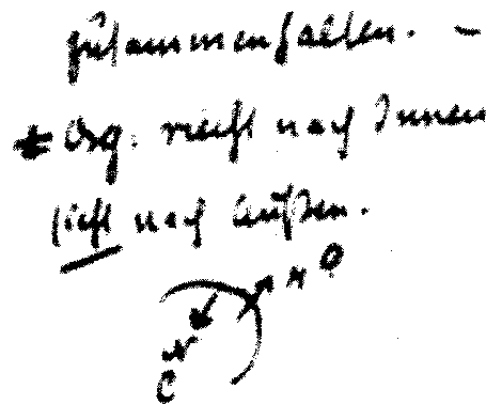 zusammenfallen. –
Org. riecht nach Innen
sieht nach Außen.
H O
C N